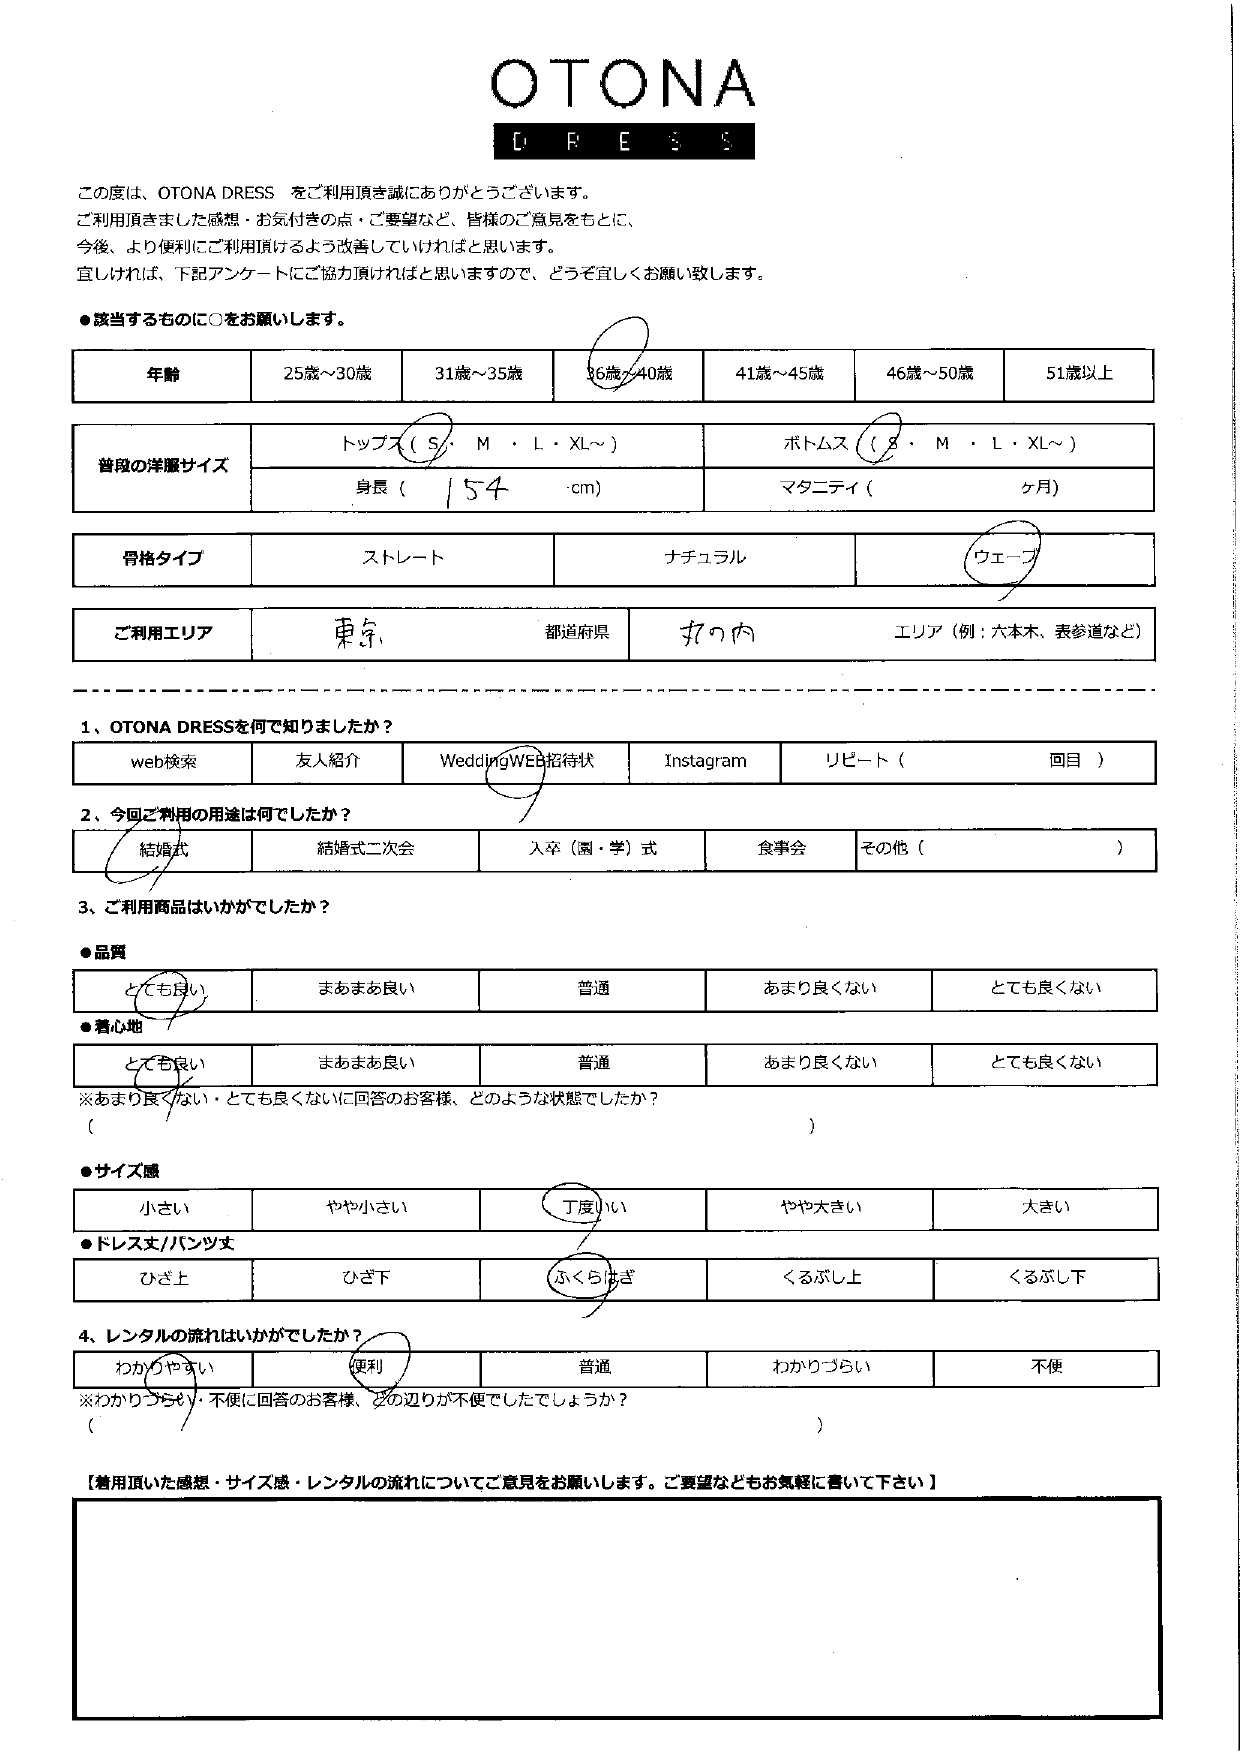 OTONA
DRESS
この度は、OTONA DRESS　をご利用頂き誠にありがとうございます。
ご利用頂きました感想・お気付きの点・ご要望など、皆様のご意見をもとに、
今後、より便利にご利用頂けるよう改善していければと思います。
宜しければ、下記アンケートにご協力頂ければと思いますので、どうぞ宜しくお願い致します。
●該当するものに○をお願いします。
年齢 25歳～30歳 31歳～35歳 36歳～40歳 41歳～45歳 46歳～50歳 51歳以上
普段の洋服サイズ トップス ( S ・ M ・ L ・ XL～ ) ボトムス ( S ・ M ・ L ・ XL～ )
身長 ( 154 cm) マタニティ ( ヶ月)
骨格タイプ ストレート ナチュラル ウェーブ
ご利用エリア 東京 都道府県 丸の内 エリア（例：六本木、表参道など）
1、OTONA DRESSを何で知りましたか？
web検索 友人紹介 WeddingWEB招待状 Instagram リピート（ 回目 ）
2、今回ご利用の用途は何でしたか？
結婚式 結婚式二次会 入卒（園・学）式 食事会 その他（ ）
3、ご利用商品はいかがでしたか？
●品質
とても良い まあまあ良い 普通 あまり良くない とても良くない
●着心地
とても良い まあまあ良い 普通 あまり良くない とても良くない
※あまり良くない・とても良くないに回答のお客様、どのような状態でしたか？
( )
●サイズ感
小さい やや小さい 丁度いい やや大きい 大きい
●ドレス丈/パンツ丈
ひざ上 ひざ下 ふくらはぎ くるぶし上 くるぶし下
4、レンタルの流れはいかがでしたか？
わかりやすい 便利 普通 わかりづらい 不便
※わかりづらい・不便に回答のお客様、どの辺りが不便でしたでしょうか？
( )
【着用頂いた感想・サイズ感・レンタルの流れについてご意見をお願いします。ご要望などもお気軽に書いて下さい】